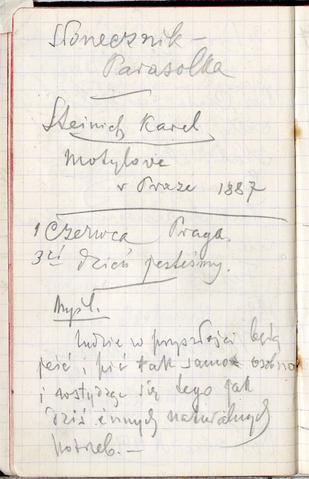 Słonecznik –
Parasolka
Steinich Karel
Motylove
v Praze 1887
1 Czerwca Praga.
3ci dzień jesteśmy.
Myśl.
ludzie w przyszłości będą
jeść i pić tak samo osobno
i wstydząc się tego jak
dziś innych naturalnych
potrzeb. –